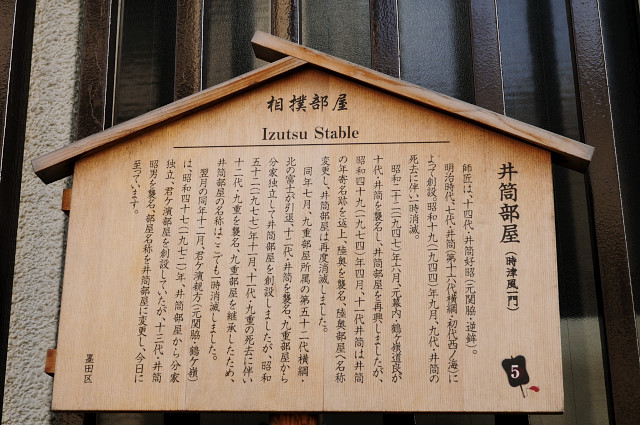 相撲部屋
Izutsu Stable
井筒部屋（時津風一門）
師匠は、十四代・井筒好昭（元関脇・逆鉾）。
明治時代、七代・井筒（第十六代横綱・初代西ノ海）に
よって創設。昭和十九（一九四四）年九月、九代・井筒の
死去に伴い一時消滅。
昭和二十二（一九四七）年六月、元幕内・鶴ケ嶺道良が
十代・井筒を襲名し、井筒部屋を再興しましたが、
昭和四十九（一九七四）年四月、十一代・井筒は井筒
の年寄名跡を返上、陸奥を襲名、陸奥部屋へ名称
変更し、井筒部屋は再度消滅しました。
同年七月、九重部屋所属の第五十二代・横綱・
北の富士が引退、十二代・井筒を襲名、九重部屋から
分家独立して井筒部屋を創設しましたが、昭和
五十二（一九七七）年十一月、十一代・九重の死去に伴い
十二代・九重を襲名、九重部屋を継承したため、
井筒部屋の名称は、ここでも一時消滅しました。
翌月の同年十二月、君ケ濱親方（元関脇・鶴ケ嶺）
は、昭和四十七（一九七二）年、井筒部屋から分家
独立、君ケ濱部屋を創設していたが、十三代・井筒
昭男を襲名、部屋名称を井筒部屋に変更し、今日に
至っています。
墨田区
5